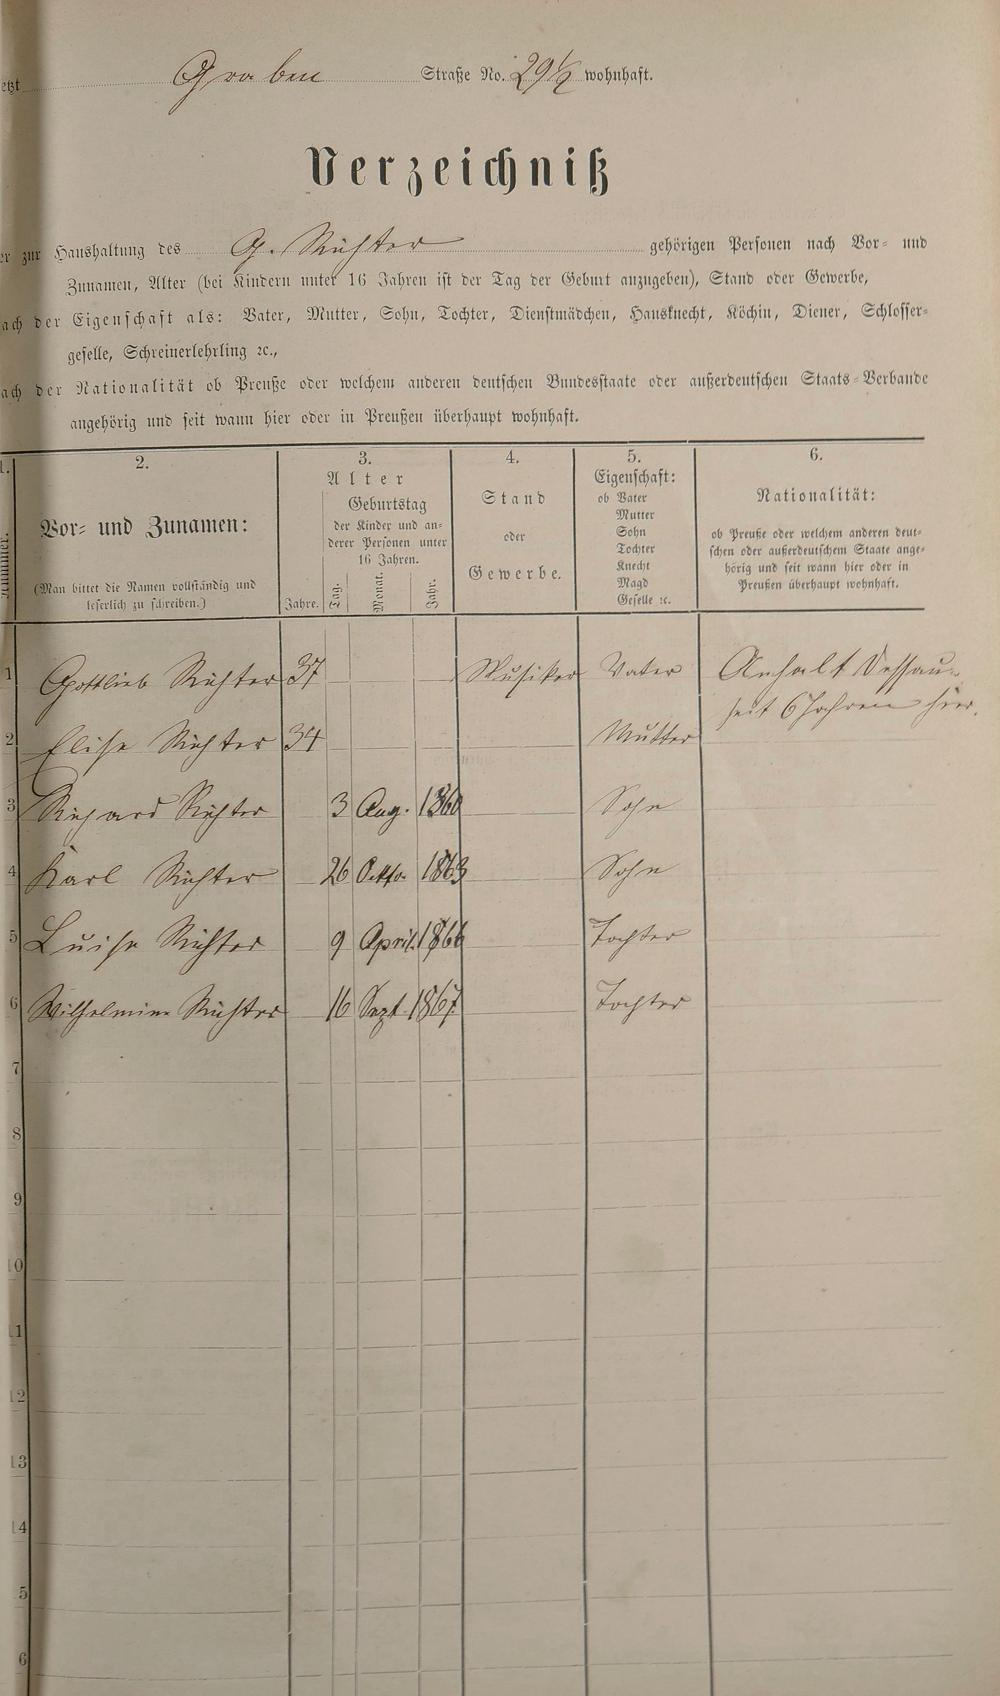 etzt Graben Straße No. 29½ wohnhaft.
Verzeichniß
er zur Haushaltung des G. Richter gehörigen Personen nach Vor- und
Zunamen, Alter (bei Kindern unter 16 Jahren ist der Tag der Geburt anzugeben), Stand oder Gewerbe,
ach der Eigenschaft als: Vater, Mutter, Sohn, Tochter, Dienstmädchen, Hausknecht, Köchin, Diener, Schlosser-
geselle, Schreinerlehrling ꝛc.,
ach der Nationalität ob Preuße oder welchem anderen deutschen Bundesstaate oder außerdeutschen Staats-Verbande
angehörig und seit wann hier oder in Preußen überhaupt wohnhaft.
1. 2. 3. 4. 5. 6.
Nummer.
Vor- und Zunamen:
(Man bittet die Namen vollständig und
leserlich zu schreiben.)
Alter
Jahre.
Geburtstag
der Kinder und an-
derer Personen unter
16 Jahren.
Tag. Monat. Jahr.
Stand
oder
Gewerbe.
Eigenschaft:
ob Vater
Mutter
Sohn
Tochter
Knecht
Magd
Geselle ꝛc.
Nationalität:
ob Preuße oder welchem anderen deut-
schen oder außerdeutschem Staate ange-
hörig und seit wann hier oder in
Preußen überhaupt wohnhaft.
1 Gottlieb Richter 37 Musiker Vater Anhalt Dessau-
seit 6 Jahren hier.
2 Elise Richter 34 Mutter
3 Richard Richter 3 Aug. 1860 Sohn
4 Karl Richter 26 Octbr 1863 Sohn
5 Luise Richter 9 April. 1866 Tochter
6 Wilhelmine Richter 16 Sept 1867 Tochter
7
8
9
10
11
12
13
14
5
6